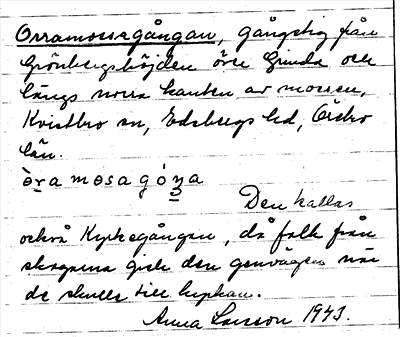 Orramossagångan, gångstig från
Grönbergshöjden över Grinda och
längs norra kanten av mossen,
Kvistbro sn, Edsbergs hd, Örebro
län.
òra mosa góŋa
Den kallas
också Kyrkegången, då folk från
skogarna gick den genvägen när
de skulle till kyrkan.
Anna Larsson 1943.